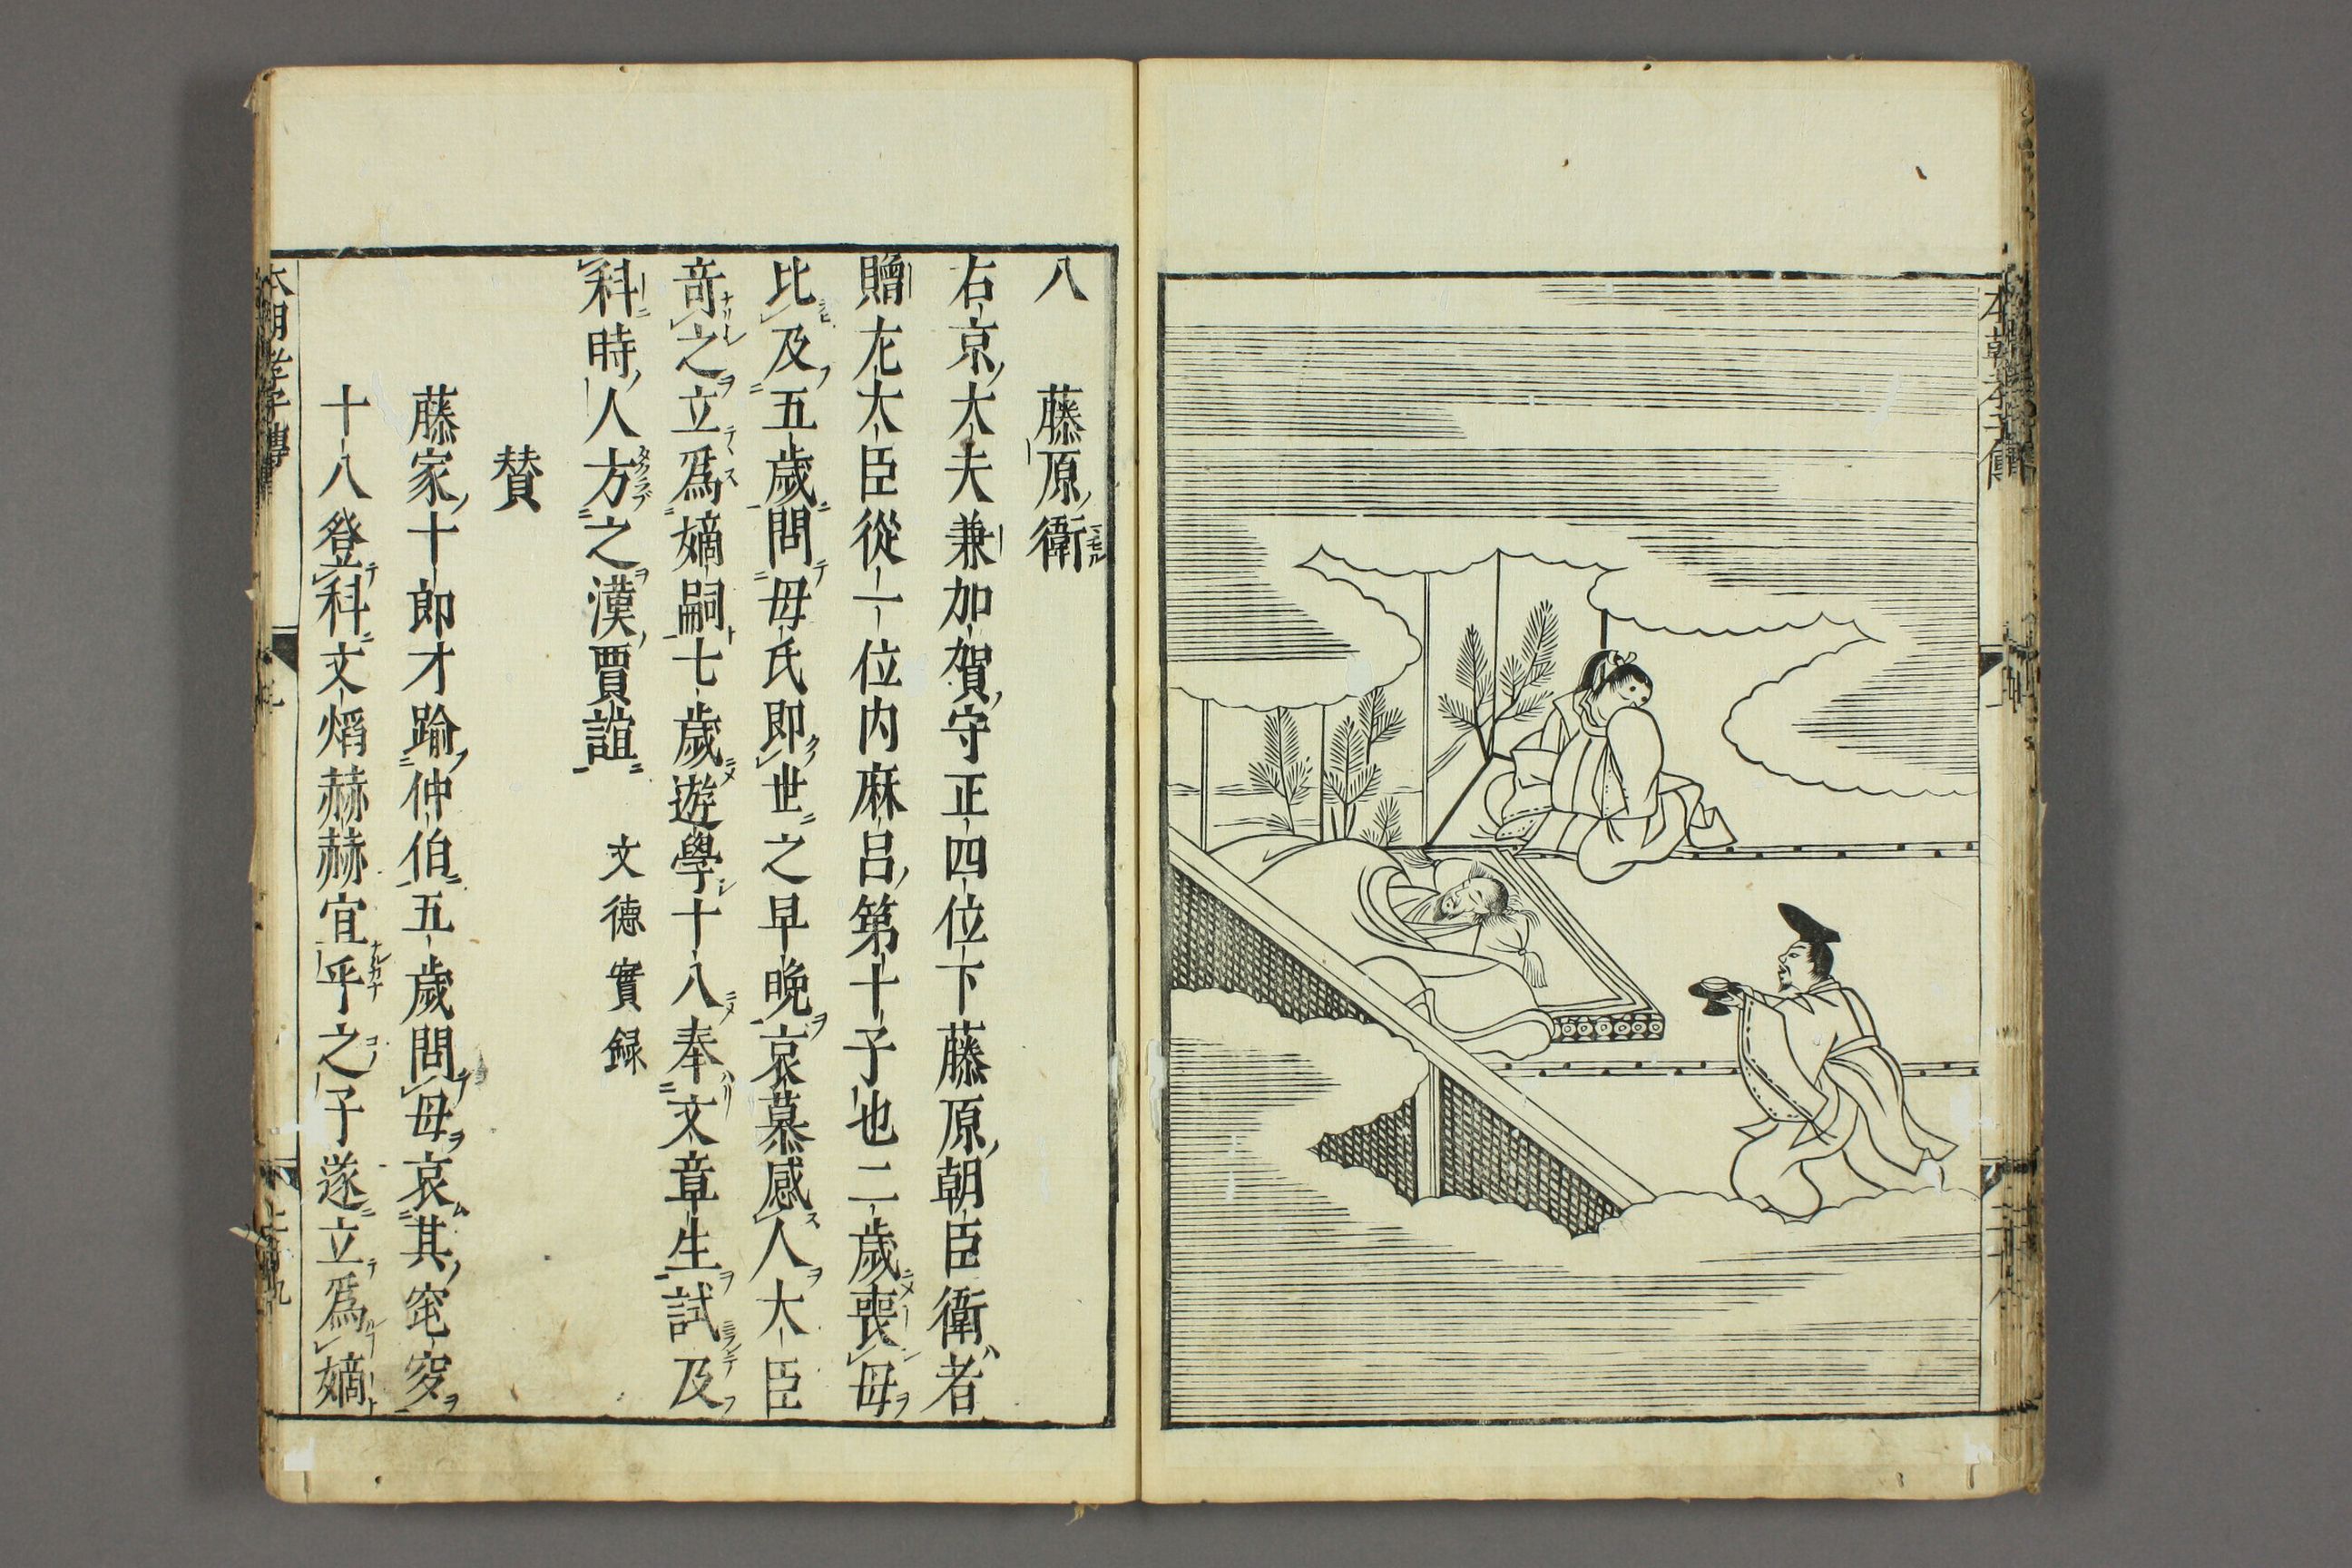 八 藤原衛
右京大夫兼加賀守正四位下藤原朝臣衛者
贈左大臣從一位内麻呂第十子也二歲喪母
比及五歲問母氏即世之早晚哀慕感人大臣
奇之立爲嫡嗣七歲遊學十八奉文章生試及
科時人方之漢賈誼 文德實録
賛
藤家十郎才踰仲伯五歲問母哀其窀穸
十八登科文熖赫赫宜乎之子遂立爲嫡